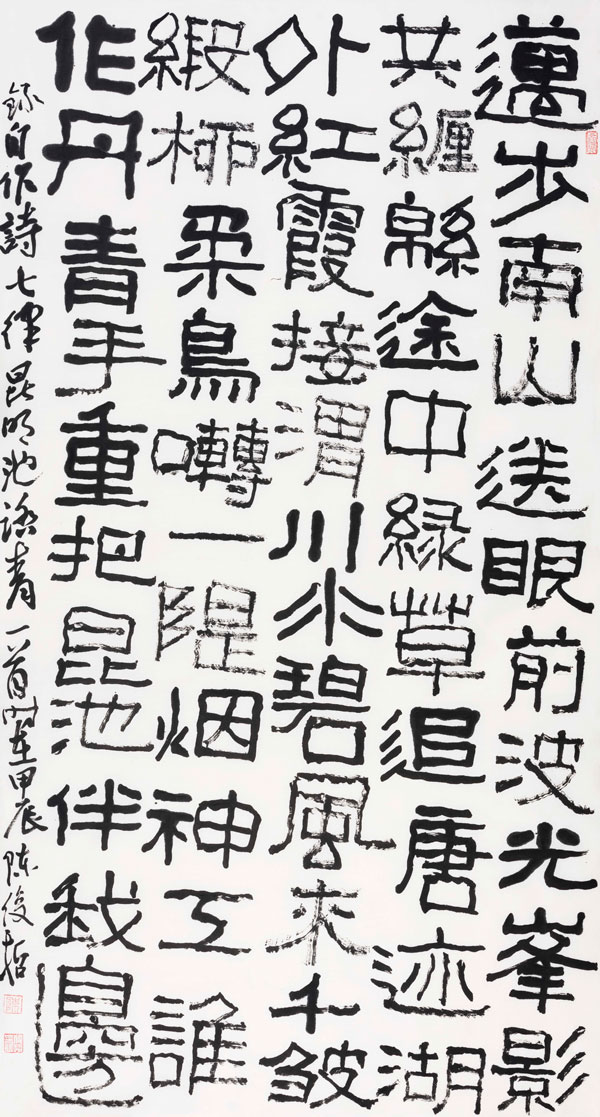 邁步南山送眼前波光峯影
共纏緜途中緑草追唐迹湖
外紅霞接渭川水碧風來千皱
緞柳柔鳥囀一隄烟神工誰
作丹青手重把昆池伴我邊
録自作詩七律昆明池踏青一首時在甲辰陈俊哲